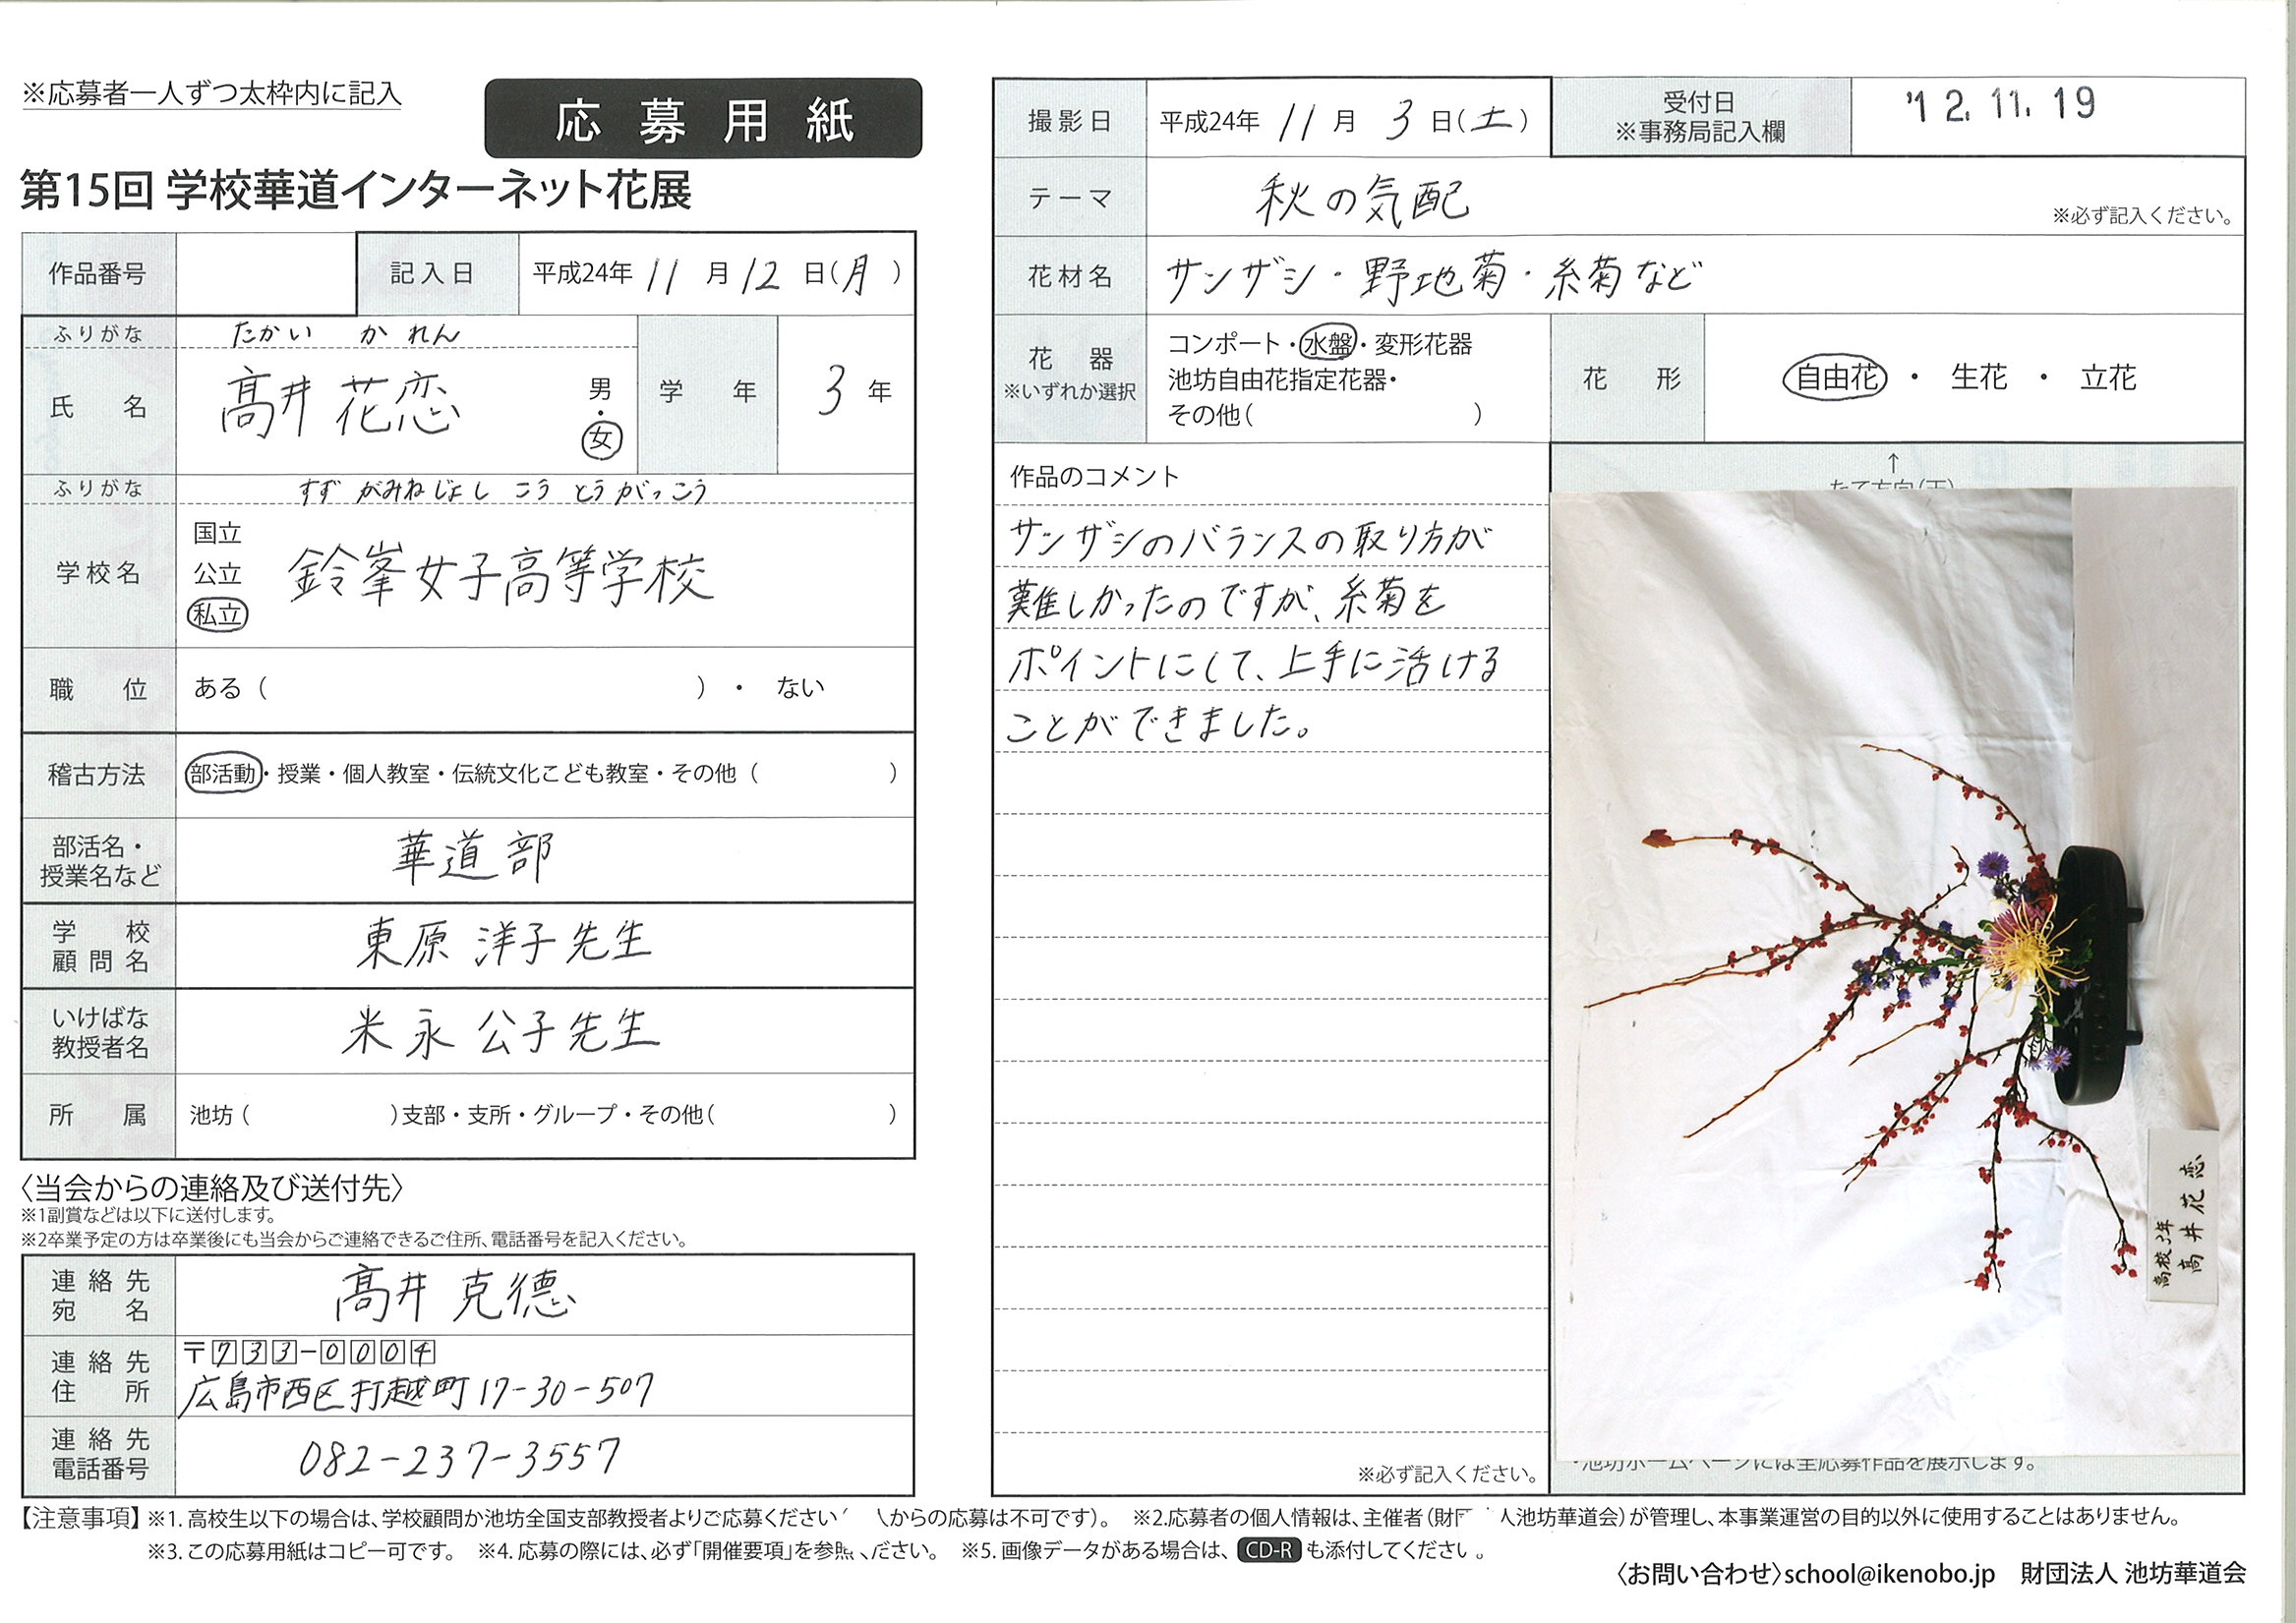 ※応募者一人ずつ太枠内に記入
応募用紙
第15回 学校華道インターネット花展
作品番号
記入日 平成24年 11月 12日(月)
ふりがな たかい かれん
氏名 髙井 花恋 男・女
学年 3年
ふりがな すずがみねじょしこうとうがっこう
学校名 国立 公立 私立 鈴峯女子高等学校
職位 ある( )・ ない
稽古方法 部活動・授業・個人教室・伝統文化こども教室・その他( )
部活名・授業名など 華道部
学校顧問名 東原 洋子先生
いけばな教授者名 米永 公子先生
所属 池坊( )支部・支所・グループ・その他( )
〈当会からの連絡及び送付先〉
※1副賞などは以下に送付します。
※2卒業予定の方は卒業後にも当会からご連絡できるご住所、電話番号を記入ください。
連絡先宛名 髙井 克徳
連絡先住所 〒733-0004
広島市西区打越町17-30-507
連絡先電話番号 082-237-3557
撮影日 平成24年 11月 3日(土)
受付日 ※事務局記入欄 '12.11.19
テーマ 秋の気配 ※必ず記入ください。
花材名 サンザシ・野地菊・糸菊など
花器 ※いずれか選択
コンポート・水盤・変形花器
池坊自由花指定花器・
その他( )
花形 自由花 ・ 生花 ・ 立花
作品のコメント
サンザシのバランスの取り方が
難しかったのですが、糸菊を
ポイントにして、上手に活ける
ことができました。
※必ず記入ください。
↑
高校3年
髙井花恋
・池坊ホームページには全応募作品を展示します。
【注意事項】※1.高校生以下の場合は、学校顧問か池坊全国支部教授者よりご応募ください からの応募は不可です)。 ※2.応募者の個人情報は、主催者(財団 人池坊華道会)が管理し、本事業運営の目的以外に使用することはありません。
※3.この応募用紙はコピー可です。 ※4.応募の際には、必ず「開催要項」を参照ください。 ※5.画像データがある場合は、CD-Rも添付してください。
〈お問い合わせ〉school@ikenobo.jp 財団法人 池坊華道会